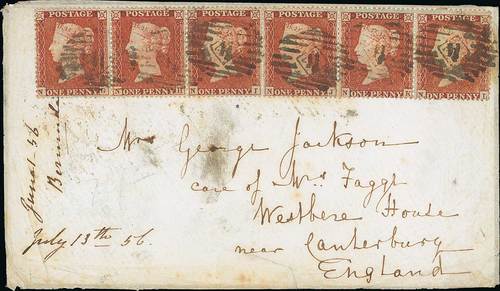 POSTAGE POSTAGE POSTAGE POSTAGE POSTAGE POSTAGE
N ONE PENNY G N ONE PENNY H N ONE PENNY I N ONE PENNY J N ONE PENNY K N ONE PENNY L
Mrs George Jackson
care of Mrs Fagge
Westbere House
near Canterbury
England
June 56
July 13th 56.